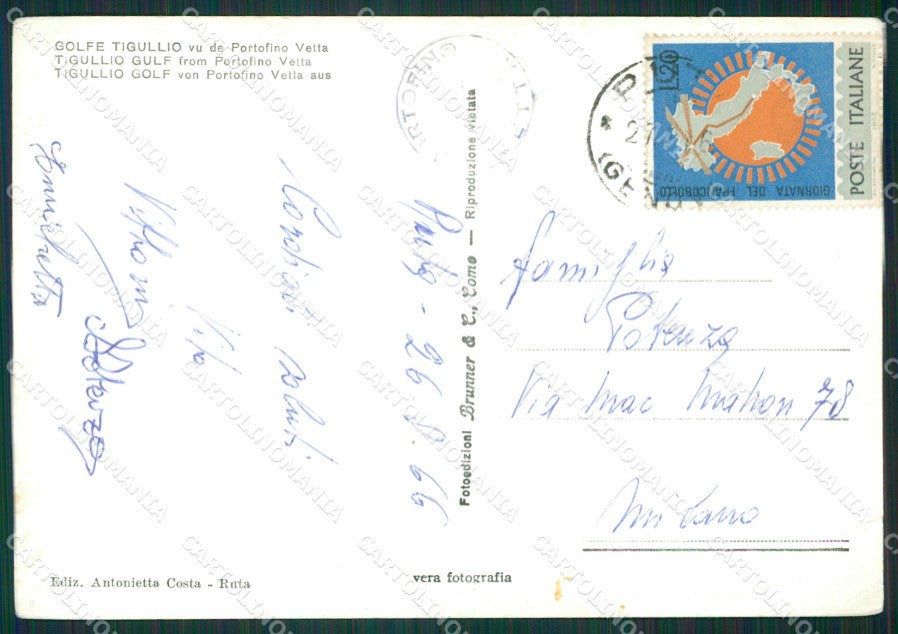 GOLFE TIGULLIO vu de Portofino Vetta
TIGULLIO GULF from Portofino Vetta
TIGULLIO GOLF von Portofino Vetta aus
RTOFINO
20
POSTE ITALIANE
GIORNATA DEL FRANCOBOLLO
Ruta - 26.
66
Cordiali saluti
Vito
Enrichetta
Fotoedizioni Brunner & C., Como — Riproduzione vietata
famiglia
Potenza
Via Mac Mahon 78
Milano
Ediz. Antonietta Costa - Ruta
vera fotografia
CARTOLINOMANIA